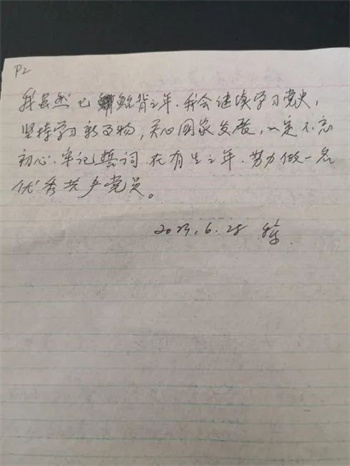 P2
我虽然已鲐背之年，我会继续学习党史，
坚持学习新事物，关心国家发展，一定不忘
初心，牢记誓词，在有生之年，努力做一名
优秀共产党员。
2023.6.28